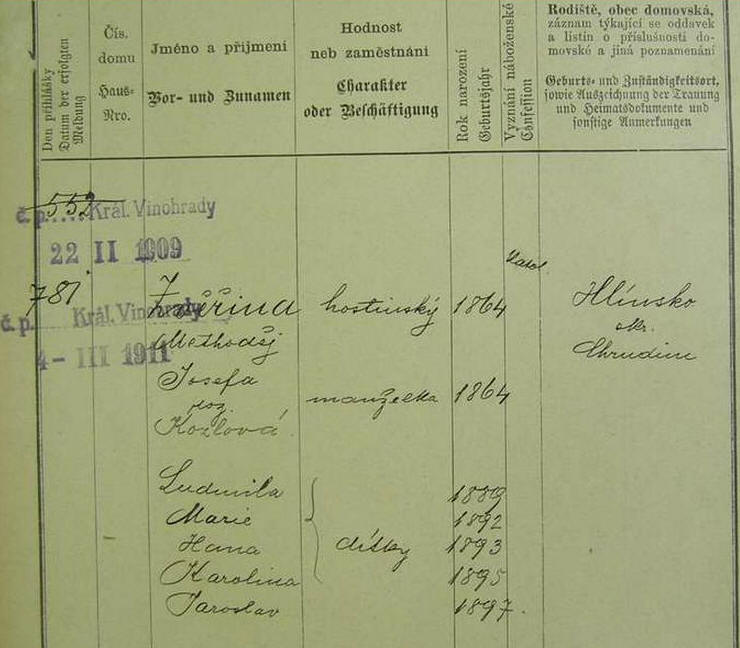 Den přihlášky
Datum der erfolgten
Meldung
Čís.
domu
Haus-
Nro.
Jméno a příjmení
Vor- und Zunamen
Hodnost
neb zaměstnání
Charakter
oder Beschäftigung
Rok narození
Geburtsjahr
Vyznání náboženské
Confession
Rodiště, obec domovská,
záznam týkající se oddavek
a listin o příslušnosti do-
movské a jiná poznamenání
Geburts- und Zuständigkeitsort,
sowie Auszeichnung der Trauung
und Heimatsdokumente und
sonstige Anmerkungen
552
č.p..... Král. Vinohrady
22 II 1909
781
č.p. Král. Vinohrady
4- III 1911
Zvěřina hostinský 1864 katol. Hlínsko
Methoděj okr.
Chrudim
Josefa manželka 1864
roz.
Kozlová
Ludmila 1889
Marie 1892
Hana dítky 1893
Karolina 1895
Jaroslav 1897.